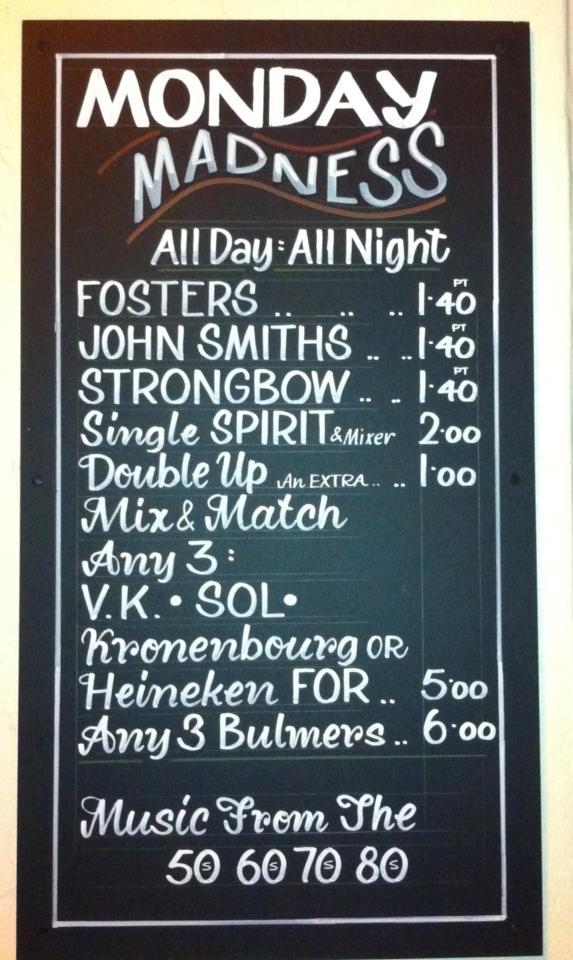 MONDAY
MADNESS
All Day: All Night
FOSTERS .. .. .. 1·40 PT
JOHN SMITHS .. .. 1·40 PT
STRONGBOW .. .. 1·40 PT
Single SPIRIT & Mixer 2·00
Double Up An EXTRA .. .. 1·00
Mix & Match
Any 3:
V.K. • SOL •
Kronenbourg OR
Heineken FOR .. 5·00
Any 3 Bulmers .. 6·00
Music From The
50s 60s 70s 80s